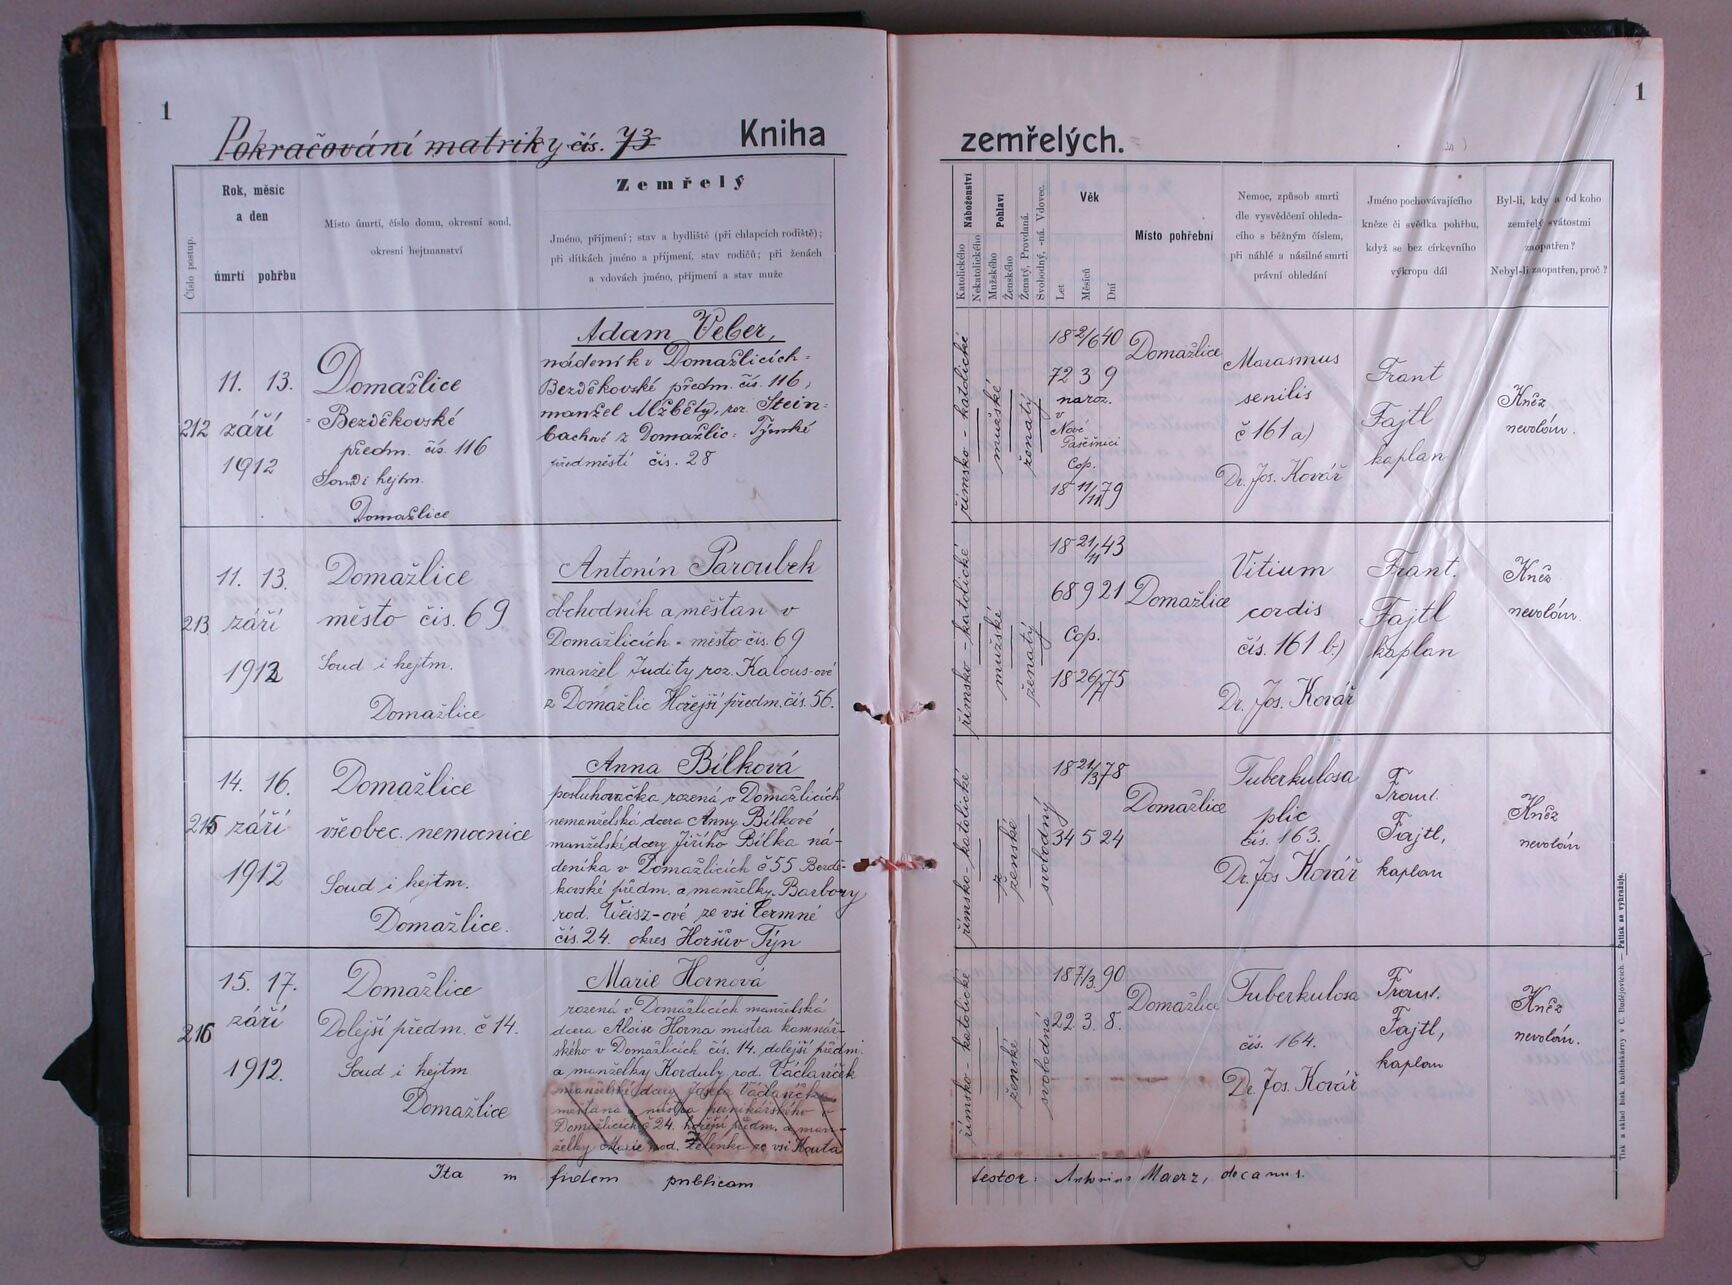 1
Pokračování matriky čís. 73
Kniha
Rok, měsíc
a den
úmrtí pohřbu
Číslo postup.
Místo úmrtí, číslo domu, okresní soud,
okresní hejtmanství
Zemřelý
Jméno, příjmení; stav a bydliště (při chlapcích rodiště);
při dítkách jméno a příjmení, stav rodičů; při ženách
a vdovách jméno, příjmení a stav muže
212
11. 13.
září
1912
Domažlice
Bezděkovské
předm. čís. 116
Soud i hejtm.
Domažlice
Adam Veber,
nádeník v Domažlicích-
Bezděkovské předm. čís. 116,
manžel Alžběty, roz. Stein-
bachové z Domažlic: Týnské
předměstí čís. 28
213
11. 13.
září
1912
Domažlice
město čis. 69
Soud i hejtm.
Domažlice
Antonín Paroubek
obchodník a měšťan v
Domažlicích - město čis. 69
manžel Judity roz. Kalous-ové
z Domažlic Hořejší předm. čís. 56.
215
14. 16.
září
1912
Domažlice
všeobec. nemocnice
Soud i hejtm.
Domažlice.
Anna Bílková
posluhovačka rozená v Domažlicích
nemanželská dcera Anny Bílkové
manželské dcery Jiřího Bílka ná-
deníka v Domažlicích č 55 Bezdě-
kovské předm. a manželky Barbory
rod. Weisz-ové ze vsi Čermné
čís. 24. okres Horšův Týn
216
15. 17.
září
1912.
Domažlice
Dolejší předm. č 14.
Soud i hejtm
Domažlice
Marie Hornová
rozená v Domažlicích manželská
dcera Aloise Horna mistra kamnář-
ského v Domažlicích čís. 14. dolejší předm.
a manželky Korduly rod. Václavíček
manželské dcery Josefa Václavíčka
měšťana a mistra perníkářského v
Domažlicích č 24. hořejší předm. a man-
želky Marie rod. Zelenka ze vsi Kouta
Ita in fidem publicam
1
zemřelých.
Náboženství
Katolického
Nekatolického
Pohlaví
Mužského
Ženského
Ženatý, Provdaná.
Svobodný, -ná. Vdovec.
Věk
Let
Měsíců
Dní
Místo pohřební
Nemoc, způsob smrti
dle vysvědčení ohleda-
cího s běžným číslem,
při náhlé a násilné smrti
právní ohledání
Jméno pochovávajícího
kněze či svědka pohřbu,
když se bez církevního
výkropu dál
Byl-li, kdy a od koho
zemřelý svátostmi
zaopatřen?
Nebyl-li zaopatřen, proč?
římsko-katolické
mužské
ženatý
18 2/6 40
72 3 9
naroz.
v
Nové
Pasečnici
Cop.
18 11/11 79
Domažlice
Marasmus
senilis
č 161 a)
Dr. Jos. Kovář
Frant
Fajtl
kaplan
Kněz
nevolán.
římsko-katolické
mužské
ženatý
18 21/11 43
68 9 21
Cop.
18 26/7 75
Domažlice
Vitium
cordis
čís. 161 b.)
Dr. Jos. Kovář
Frant.
Fajtl
kaplan
Kněz
nevolán.
římsko-katolické
ženské
svobodný
18 21/3 78
34 5 24
Domažlice
Tuberkulosa
plic
čís. 163.
Dr. Jos Kovář
Frant.
Fajtl,
kaplan
Kněz
nevolán
římsko-katolické
ženské
svobodná
18 7/3. 90
22 3. 8.
Domažlice
Tuberkulosa
čís. 164.
Dr. Jos. Kovář
Frant.
Fajtl,
kaplan
Kněz
nevolán.
testor: Antonius Maerz, decanus.
Tisk a sklad bisk. knihtiskárny v Č. Budějovicích. — Patisk se vyhražuje.